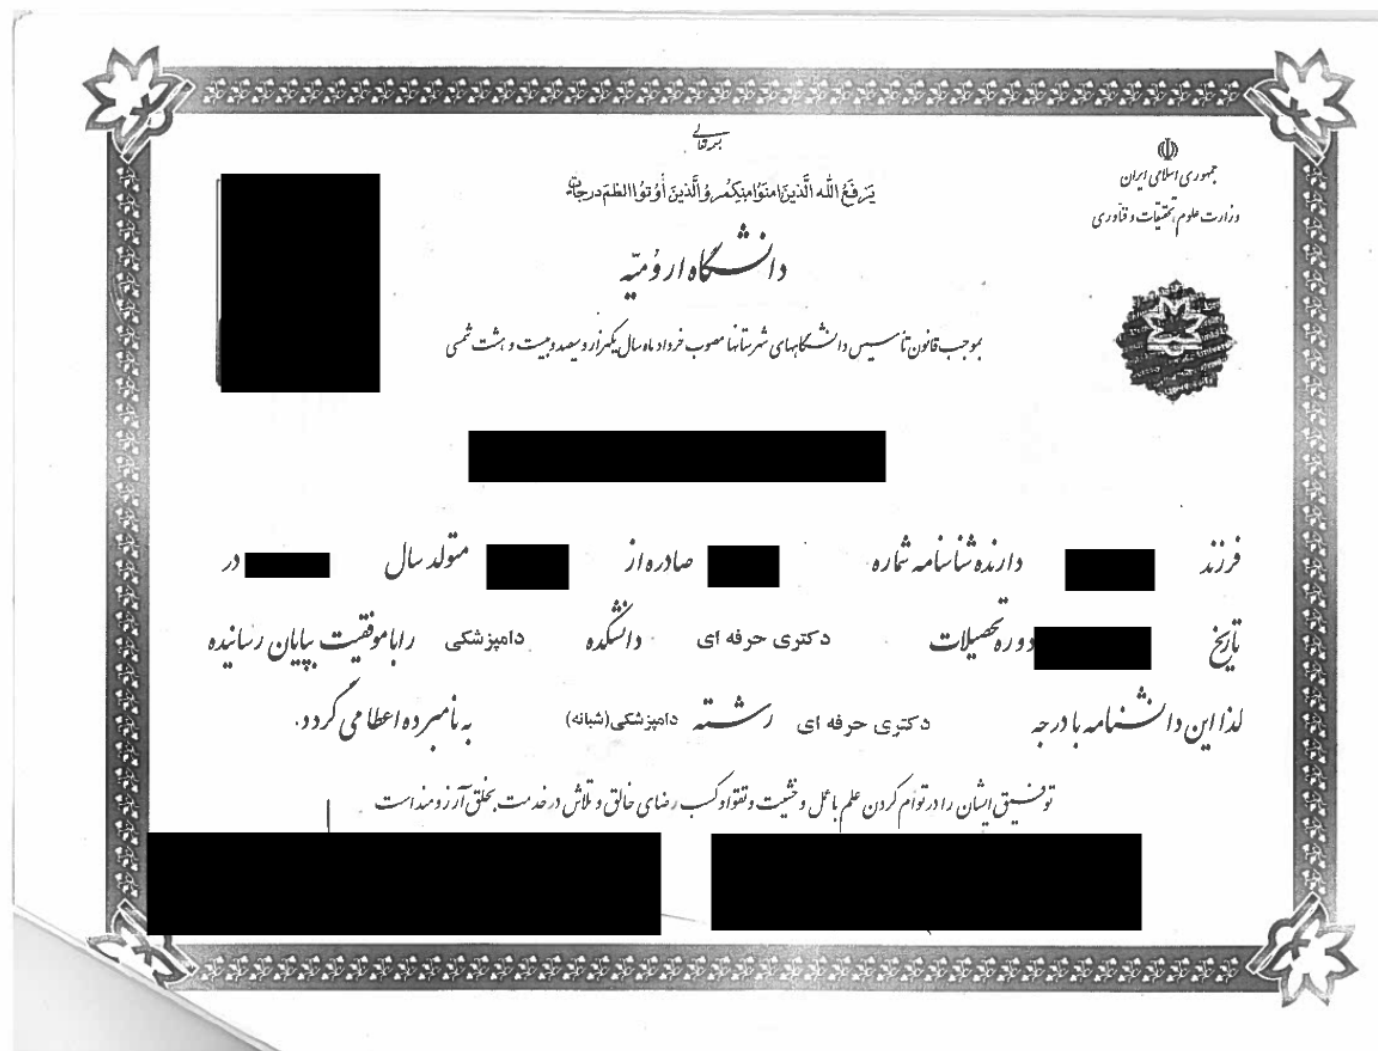 بسمه تعالی
جمهوری اسلامی ایران
وزارت علوم، تحقیقات و فنّاوری
یَرفَعُ اللّه الَّذینَ امَنوُا مِنکُم وَ الَّذینَ أوُتوُا العلمَ دَرجات
دانشگاه ارومیّه
بموجب قانون تأسیس دانشگاههای شهرستانها مصوب خرداد ماه سال یکهزار و سیصد و بیست و هشت شمسی
فرزند دارنده شناسنامه شماره صادره از متولد سال در
تاریخ دوره تحصیلات دکتری حرفه ای دانشکده دامپزشکی را با موفقیت بپایان رسانیده
لذا این دانشنامه با درجه دکتری حرفه ای رشته دامپزشکی(شبانه) به نامبرده اعطا می گردد.
توفیق ایشان را در توأم کردن علم با عمل و خشیت و تقوا و کسب رضای خالق و تلاش در خدمت بخلق آرزومند است